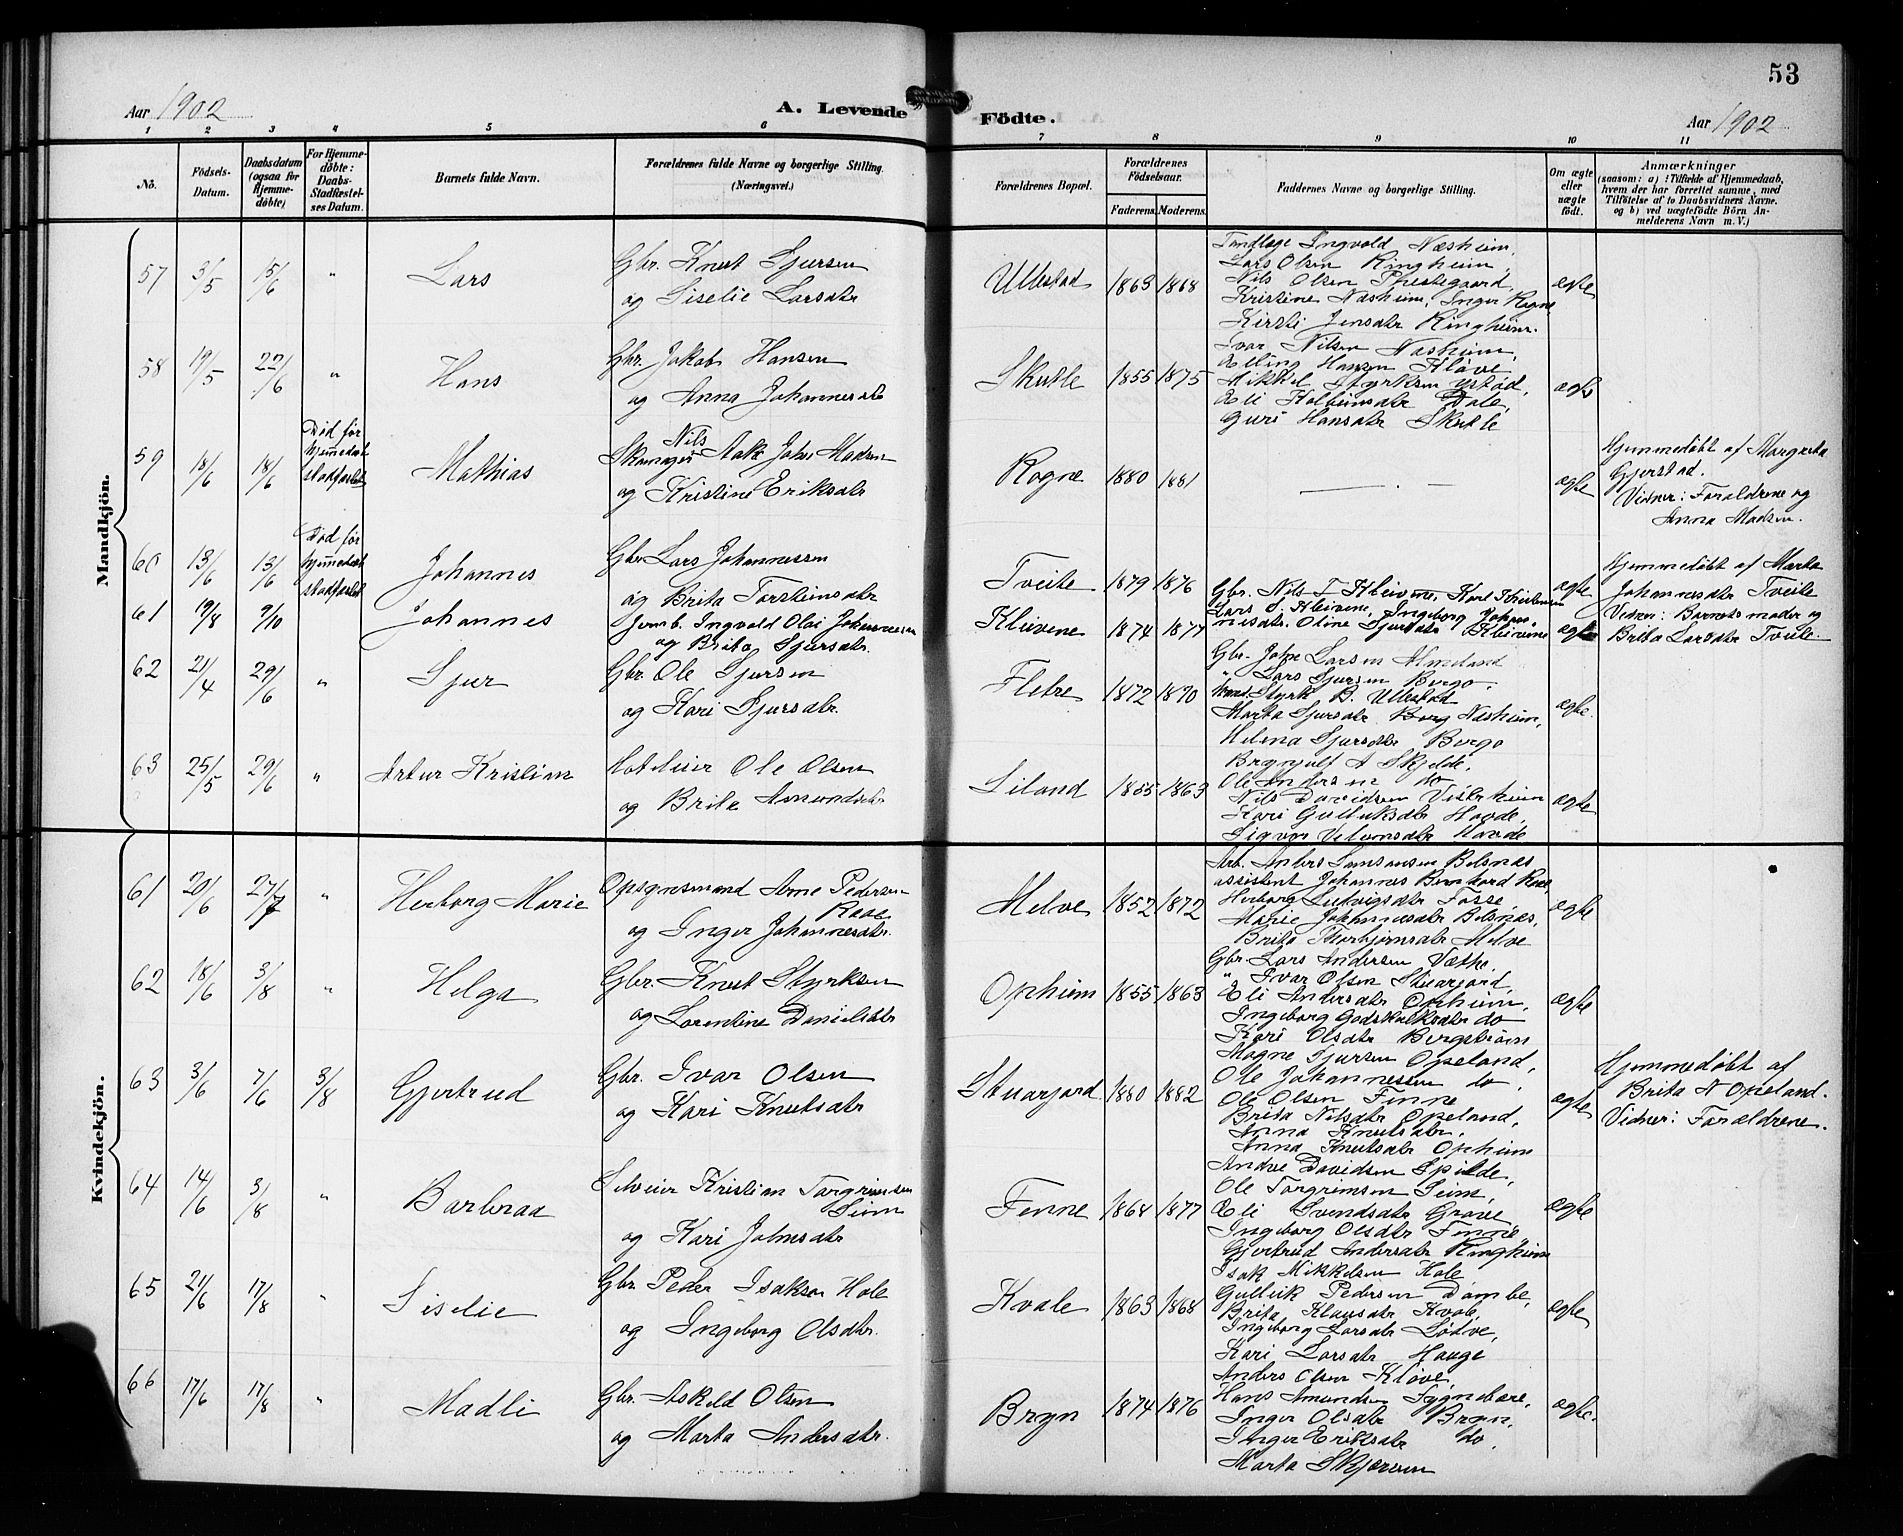 53
Aar 1902
A. Levende
Födte.
Aar 1902
1 2 3 4 5 6 7 8 9 10 11
No.
Födsels-
Datum.
Daabsdatum
(ogsaa for
Hjemme-
döbte)
For Hjemme-
döbte:
Daabs-
Stadfæstel-
ses Datum.
Barnets fulde Navn.
Forældrenes fulde Navne og borgerlige Stilling.
(Næringsvei.)
Forældrenes Bopæl.
Forældrenes
Födselsaar.
Faderens. Moderens.
Faddernes Navne og borgerlige Stilling.
Om ægte
eller
uægte
födt.
Anmærkninger
(saasom: a) i Tilfælde af Hjemmedaab,
hvem der har forrettet samme, med
Tilföielse af to Daabsvidners Navne.
og b) ved uægtefödte Börn An-
melderens Navn m. V.)
Mandkjön.
57 3/5 15/6 " Lars
Gbr. Knut Sjursen
og Siselie Larsdtr
Ullestad 1863 1868
Tandlæge Ingvald Næsheim,
Lars Olsen Ringheim,
Nils Olsen Prestegaard,
Kristine Næsheim, Inger Rogne
Kirsti Jensdtr Ringheim.
ægte
58 19/5 22/6 " Hans
Gbr. Jakob Hansen
og Anna Johannesdtr
Skutle 1855 1875
Ivar Nilsen Næsheim,
Elling Hansen Kløve
Mikkel Styrksen Ystad,
Eli Kolbeinsdtr Dale,
Guri Hansdtr Skutle
ægte
59 18/6 18/6
Død før
hjemmedaab
stadfæstet
Mathias
Skomager Nils Aak John Madsen
og Kristine Eriksdtr
Rogne 1880 1881
ægte
Hjemmedøbt af Margreta
Gjerstad.
Vidner: Forældrene og
Anna Madsen.
60 13/6 13/6
Død før
hjemmedaab
stadfæstet
Johannes
Gbr Lars Johannessen
og Brita Torsteinsdtr
Tveite 1879 1876
ægte
Hjemmedøbt af Marta
Johannesdtr Tveite
Vidner: Barnets moder og
Brita Larsdtr Tveite
61 19/8 9/10 Johannes
Jernb. Ingvald Olai Johannesen
og Brita Sjursdtr.
Kleivene 1874 1877
Gbr. Nils T Kleivene, Karl Kristensen
Lars S. Kleivene, Ingeborg Johan-
nesdtr. Oline Sjursdtr Kleivene
ægte
62 21/4 29/6 " Sjur
Gbr. Ole Sjursen
og Kari Sjursdtr.
Fletre 1872 1870
Gbr. John Larsen Almeland
" Lars Sjursen Bergo.
Styrk B. Ullestad
Marta Sjursdtr Borg Næsheim,
Helena Sjursdtr Bergo
ægte.
63 25/5 29/6 " Artur Kristian
Hotelleier Ole Olsen
og Brite Amundsdtr
Liland 1855 1863
Brynjulf A Skjelde,
Ole Andersen do
Nils Davidsen Vesterheim
Kari Gulleiksdtr Havde,
ægte
Kvindekjön.
61 20/6 27/7 " Herborg Marie
Opsynsmand Arne Pedersen
Raae
og Inger Johannesdtr.
Melve 1852 1872
Arb. Anders Samsonsen Bolsnæs
assistent Johannes Bernhard Raae
Herborg Ludvigsdtr Fosse,
Marie Johannesdtr Bolsnæs,
Brita Thorbjørnsdtr Melve
ægte
62 18/6 3/8 " Helga
Gbr. Knut Styrksen
og Lorentine Danielsdtr
Opheim 1855 1863
Gbr. Lars Andersen Væthe,
" Ivar Olsen Stuarjord,
Eli Andersdtr Opheim,
Ingeborg Godskalksdtr do
Kari Olsdtr Bergstrøm
ægte
63 3/6 7/6 3/8 Gjertrud
Gbr. Ivar Olsen
og Kari Knutsdtr
Stuarjord 1880 1882
Magne Sjursen Opeland,
Ole Johannessen do,
Ole Olsen Finne
Brita Nilsdtr Opeland,
Anna Knutsdtr,
Anna Knutsdtr Opheim
ægte
Hjemmedøbt af
Brita N Opeland.
Vidner: Forældrene.
64 14/6 3/8 " Barbraa
Selveier Kristian Torgrimsen
Seim
og Kari Johnsdtr
Finne 1864 1877
Andve Davidsen Spilde,
Ole Torgrimsen Seim,
Eli Svendsdtr Grove
Ingeborg Olsdtr Finne,
Gjertrud Andersdtr Ringheim
ægte
65 21/6 17/8 " Siselie
Gbr. Peder Isaksen Hole
og Ingeborg Olsdtr.
Kvale 1863 1868
Isak Mikkelsen Hole
Gulleik Pedersen Dømbe,
Brita Klausdtr Kvale,
Ingeborg Larsdtr Lødve,
Kari Larsdtr Hauge
ægte
66 17/6 17/8 " Madli
Gbr. Askeld Olsen
og Marta Andersdtr.
Bryn 1874 1876
Anders Olsen Kløve,
Hans Amundsen Tygnebære,
Inger Olsdtr Bryn,
Inger Eriksdtr do,
Marta Skjerven
ægte.